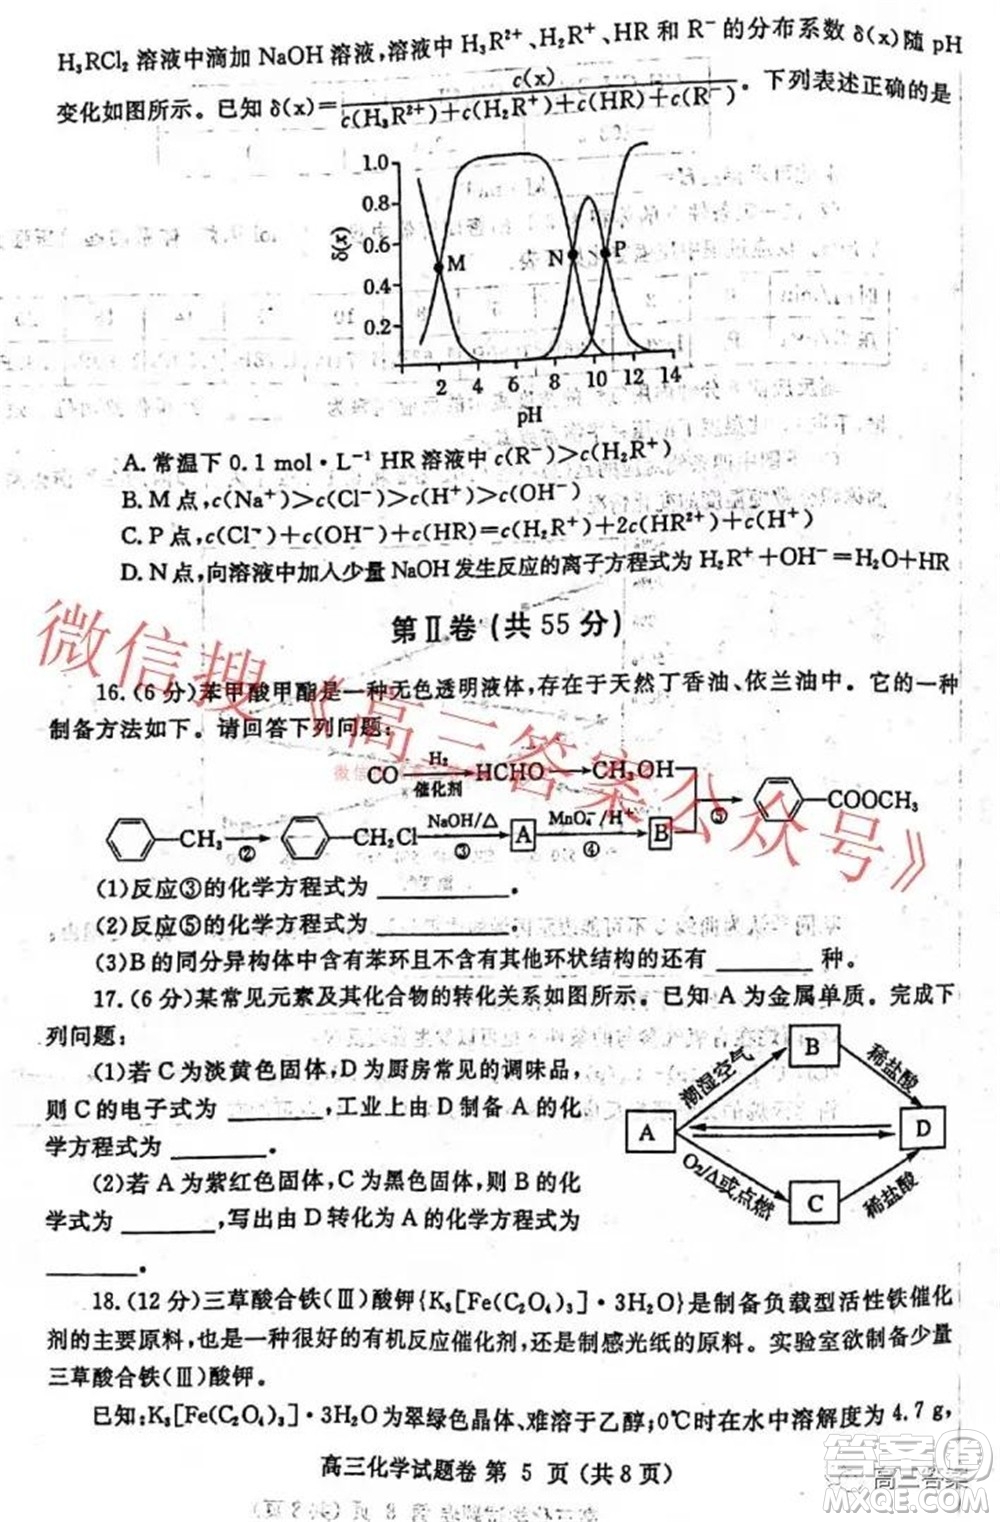 H₃RCl₂ 溶液中滴加 NaOH 溶液,溶液中 H₃R²⁺、H₂R⁺、HR 和 R⁻ 的分布系数 δ(x)随 pH
变化如图所示。已知 δ(x)=c(x)/(c(H₃R²⁺)+c(H₂R⁺)+c(HR)+c(R⁻))。下列表述正确的是
1.0
0.8
0.6
0.4
0.2
δ(x)
M
N
P
2 4 6 8 10 12 14
pH
A. 常温下 0.1 mol·L⁻¹ HR 溶液中 c(R⁻)>c(H₂R⁺)
B. M 点, c(Na⁺)>c(Cl⁻)>c(H⁺)>c(OH⁻)
C. P 点, c(Cl⁻)+c(OH⁻)+c(HR)=c(H₂R⁺)+2c(HR²⁺)+c(H⁺)
D. N 点,向溶液中加入少量 NaOH 发生反应的离子方程式为 H₂R⁺+OH⁻=H₂O+HR
第Ⅱ卷(共 55 分)
16.(6 分)苯甲酸甲酯是一种无色透明液体,存在于天然丁香油、依兰油中。它的一种
制备方法如下。请回答下列问题:
CO H₂ 催化剂 HCHO CH₃OH
CH₃ ② CH₂Cl NaOH/△ ③ A MnO₄⁻/H⁺ ④ B ⑤ COOCH₃
(1)反应③的化学方程式为 ________。
(2)反应⑤的化学方程式为 ________。
(3)B 的同分异构体中含有苯环且不含有其他环状结构的还有 ________ 种。
17.(6 分)某常见元素及其化合物的转化关系如图所示。已知 A 为金属单质。完成下
列问题:
(1)若 C 为淡黄色固体,D 为厨房常见的调味品,
则 C 的电子式为 ________,工业上由 D 制备 A 的化
学方程式为 ________。
(2)若 A 为紫红色固体,C 为黑色固体,则 B 的化
学式为 ________,写出由 D 转化为 A 的化学方程式为
________。
A
B
C
D
潮湿空气
稀盐酸
O₂/△或点燃
稀盐酸
18.(12 分)三草酸合铁(Ⅲ)酸钾{K₃[Fe(C₂O₄)₃]·3H₂O}是制备负载型活性铁催化
剂的主要原料,也是一种很好的有机反应催化剂,还是制感光纸的原料。实验室欲制备少量
三草酸合铁(Ⅲ)酸钾。
已知:K₃[Fe(C₂O₄)₃]·3H₂O 为翠绿色晶体、难溶于乙醇;0℃时在水中溶解度为 4.7 g,
高三化学试题卷 第 5 页(共 8 页)
微信搜《高三答案公众号》
高三答案
答案圈
MXQE.COM